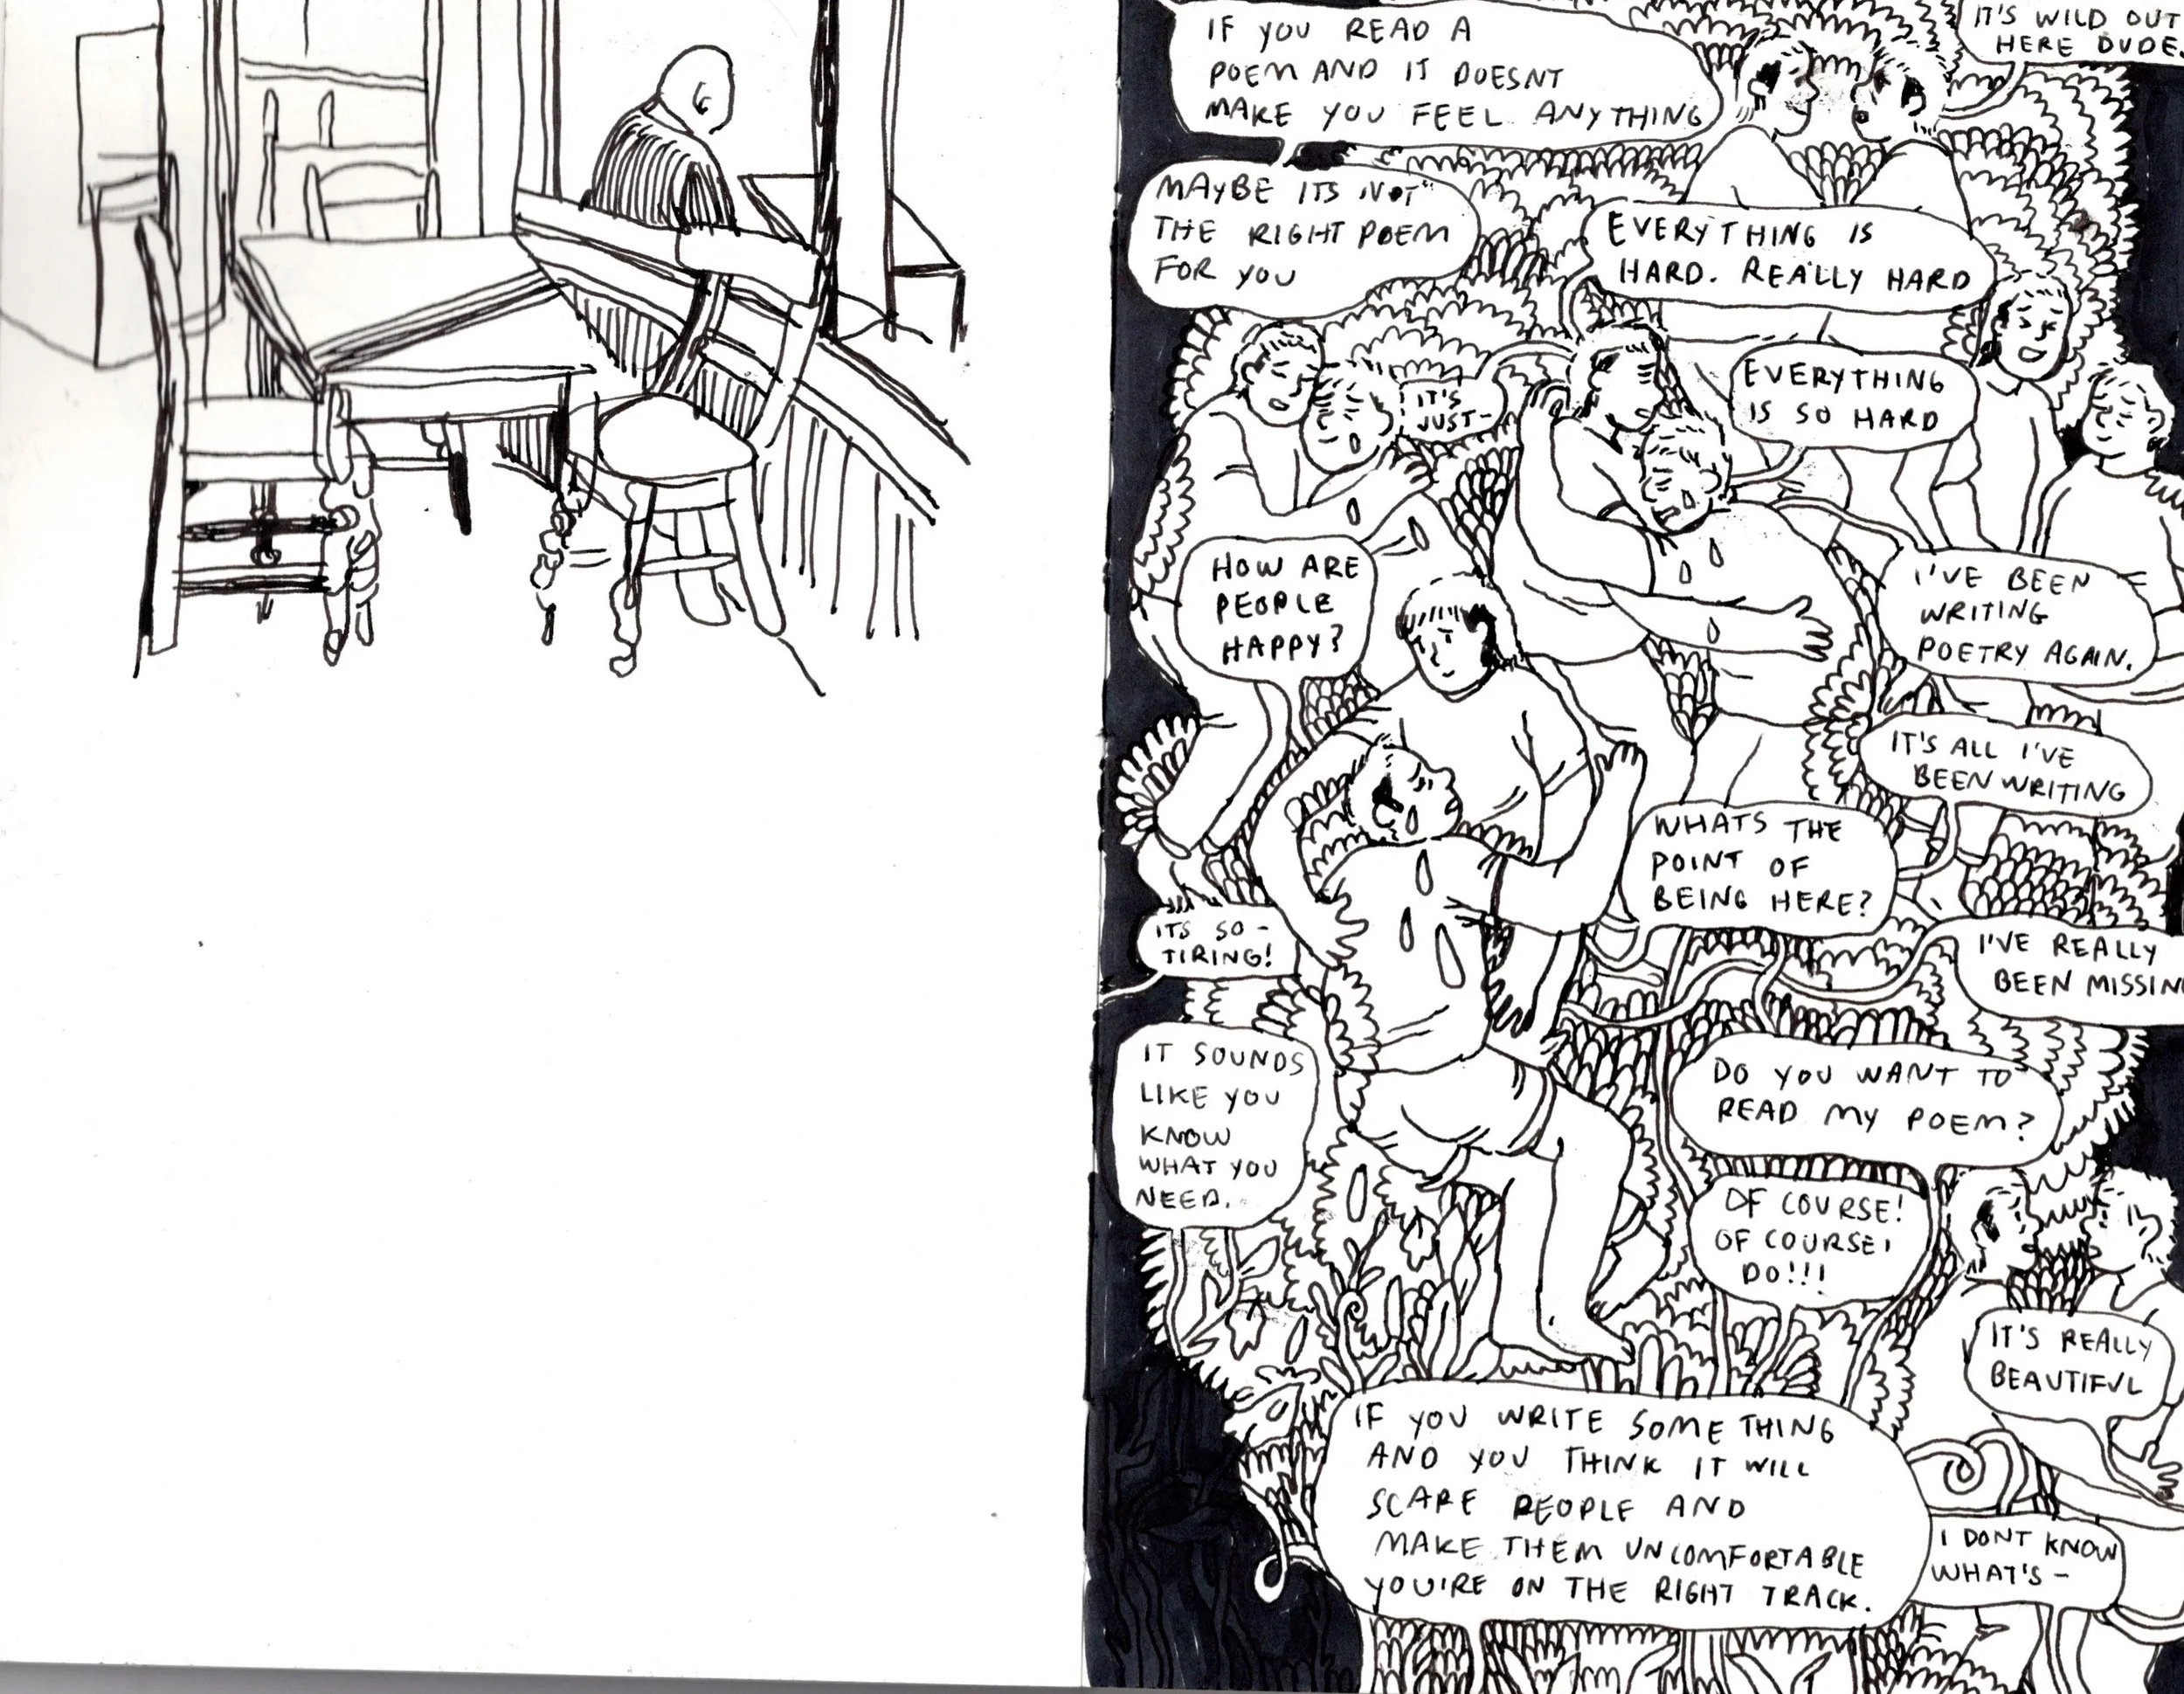 IF YOU READ A
POEM AND IT DOESNT
MAKE YOU FEEL ANYTHING
IT'S WILD OUT
HERE DUDE.
MAYBE ITS NOT
THE RIGHT POEM
FOR YOU
EVERYTHING IS
HARD. REALLY HARD
IT'S
JUST-
EVERYTHING
IS SO HARD
HOW ARE
PEOPLE
HAPPY?
I'VE BEEN
WRITING
POETRY AGAIN.
IT'S ALL I'VE
BEEN WRITING
WHATS THE
POINT OF
BEING HERE?
ITS SO-
TIRING!
I'VE REALLY
BEEN MISSIN
IT SOUNDS
LIKE YOU
KNOW
WHAT YOU
NEED.
DO YOU WANT TO
READ MY POEM?
OF COURSE!
OF COURSE I
DO!!!
IT'S REALLY
BEAUTIFUL
IF YOU WRITE SOMETHING
AND YOU THINK IT WILL
SCARE PEOPLE AND
MAKE THEM UNCOMFORTABLE
YOU'RE ON THE RIGHT TRACK.
I DONT KNOW
WHAT'S-